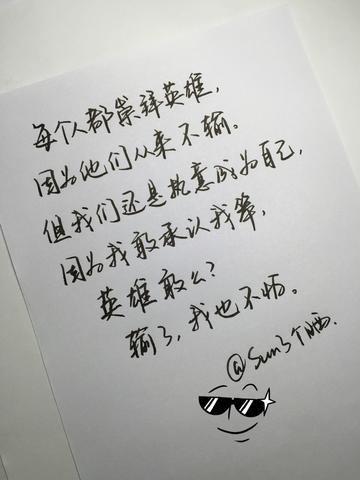 每个人都崇拜英雄，
因为他们从来不输。
但我们还是执意成为自己，
因为我敢承认我笨，
英雄敢么？
输了，我也不怕。
@Sun3个